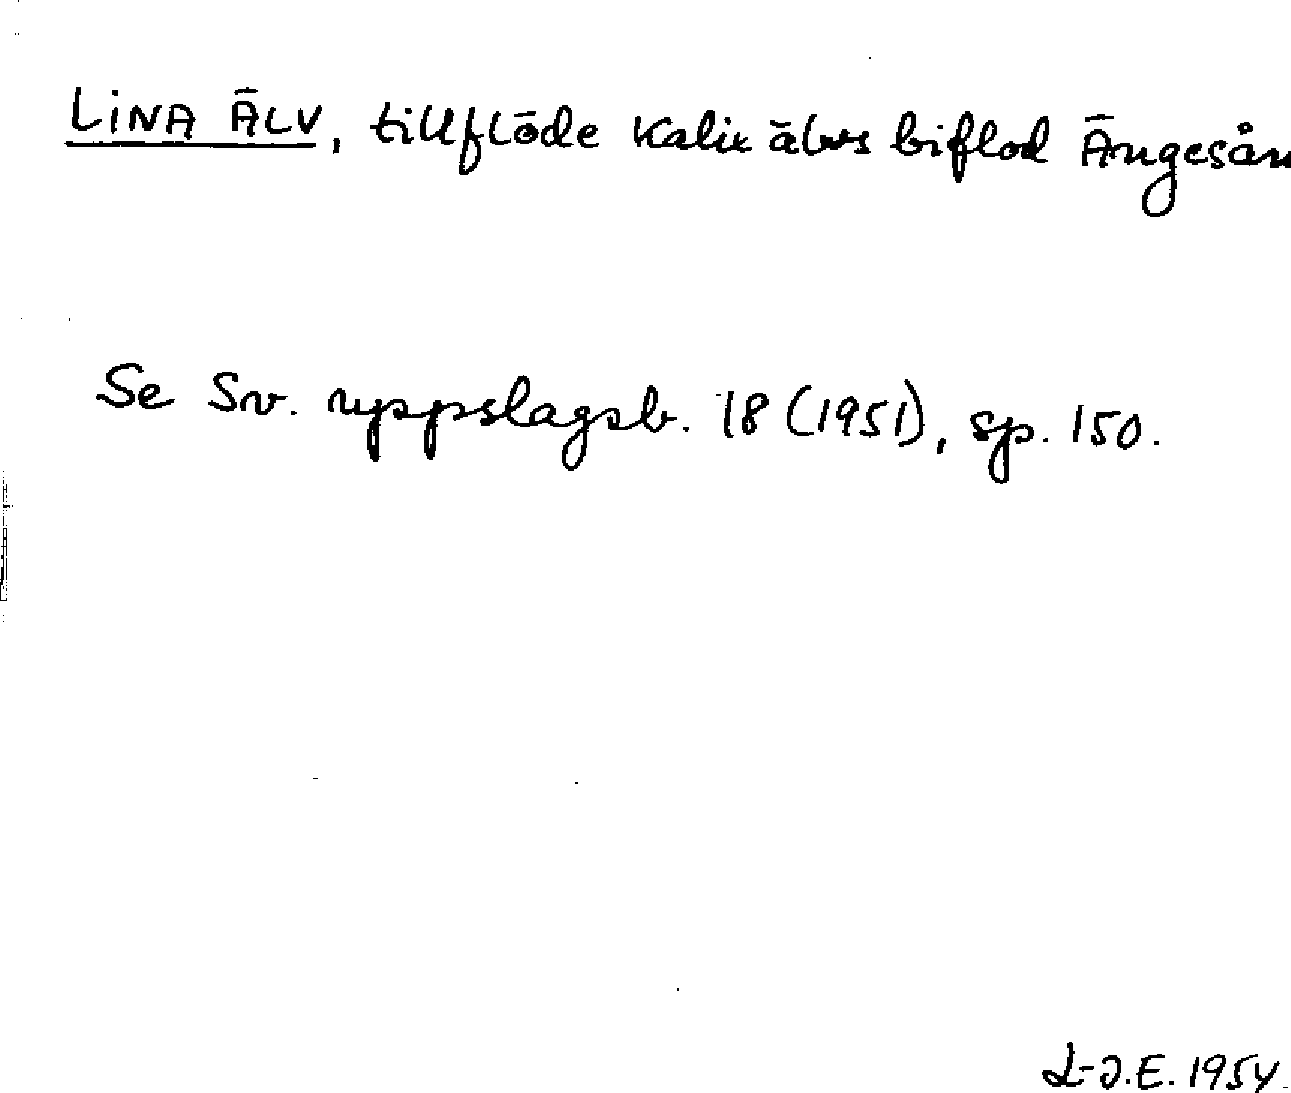 LINA ÄLV, tillflöde Kalix älvs biflod Ängesån
Se Sv. uppslagsb. 18 (1951), sp. 150.
L-J.E. 1954